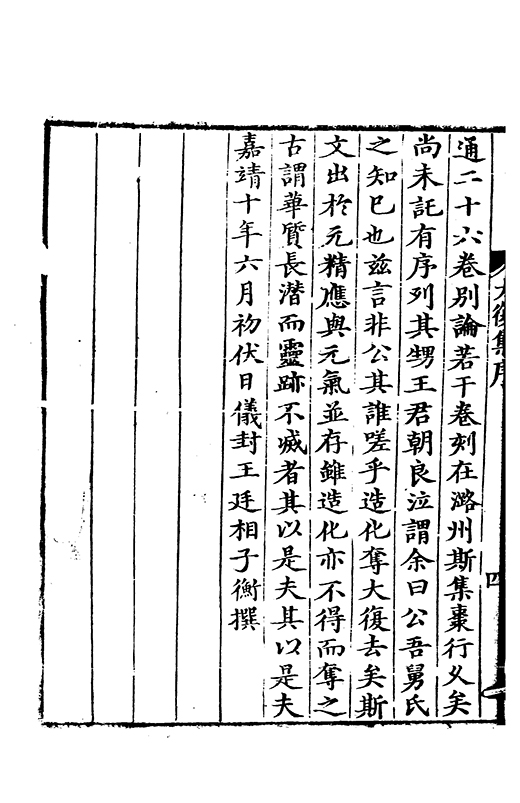 大復集序
四
通二十六卷別論若干卷刻在潞州斯集棗行乆矣
尚未託有序列其甥王君朝良泣謂余曰公吾舅氏
之知巳也兹言非公其誰嗟乎造化奪大復去矣斯
文出於元精應與元氣並存雖造化亦不得而奪之
古謂華質長潛而靈跡不滅者其以是夫其以是夫
嘉靖十年六月初伏日儀封王廷相子衡撰